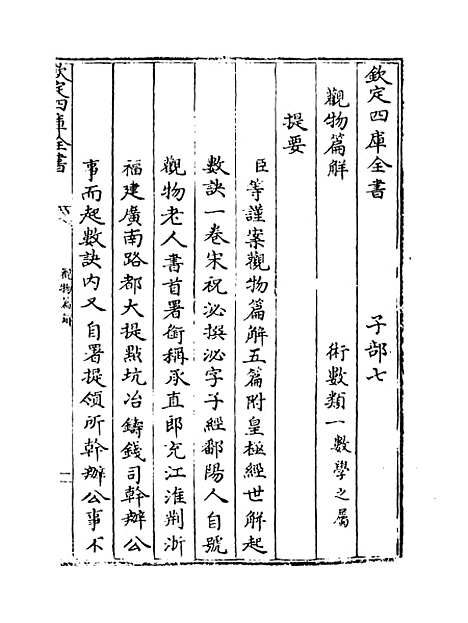 欽定四庫全書 子部七
觀物篇解 術數類一數學之屬
提要
臣等謹案觀物篇解五篇附皇極經世解起
數訣一卷宋祝泌撰泌字子經鄱陽人自號
觀物老人書首署銜稱承直郎充江淮荆浙
福建廣南路都大提㸃坑冶鑄錢司幹辦公
事而起數訣内又自署提領所幹辦公事不
欽定四庫全書
觀物篇解
一